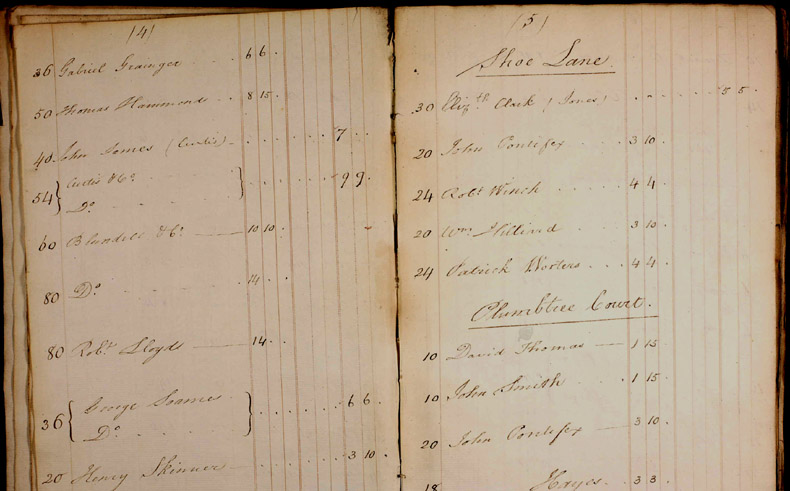 (4)
36 Gabriel Grainger . . . 6 6 .
50 Thomas Hammonds . . 8 15 .
40 John Jomes (Curtis) . . . . . . . 7 . .
54 { Curtis & Co. } . . . . . . 9 9 .
Do.
60 Blundell & Co. 10 10 .
80 Do. . . . . 14 . .
80 Robt. Lloyds 14 . .
36 { George Soames } . . . . . . 6 6 .
Do.
20 Henry Skinner . . . . . 3 10 .
(5)
Shoe Lane
30 Elizth. Clark (Jones) . . . . . . 5 5 .
20 John Pontifex . . . . 3 10 .
24 Robt. Winch . . . . . 4 4
20 Wm. . . . . 3 10 .
24 Patrick Wooters . . . 4 4 .
Plumbtree Court .
10 David Thomas 1 15
10 John Smith . . . . 1 15
20 John Pontifex 3 10 .
18 Hayes . . 3 3 .